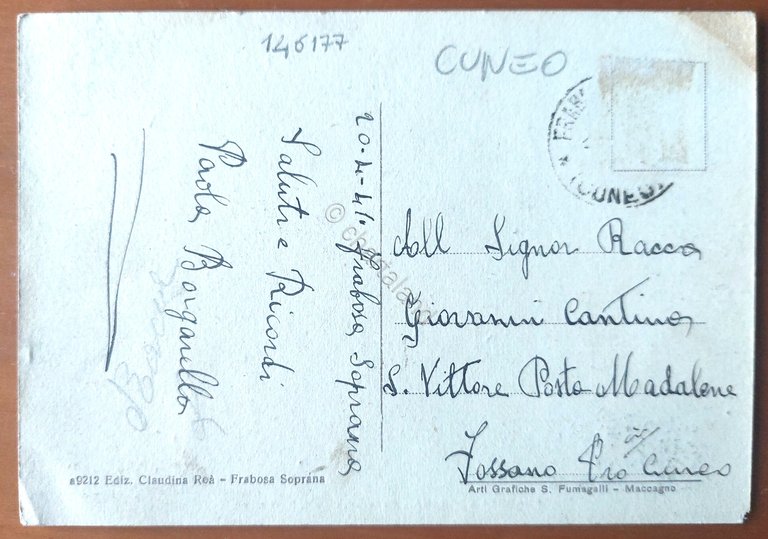 146177
CUNEO
FRAB
(CUNEO)
20-4-41 Frabosa Soprana
Saluti e Ricordi
Paola Borgarello
All Signor Racca
Giovanni Cantina
S. Vittore Posta Madalene
Fossano Pro Cuneo
a9212 Ediz. Claudina Roà - Frabosa Soprana
Arti Grafiche S. Fumagalli - Maccagno